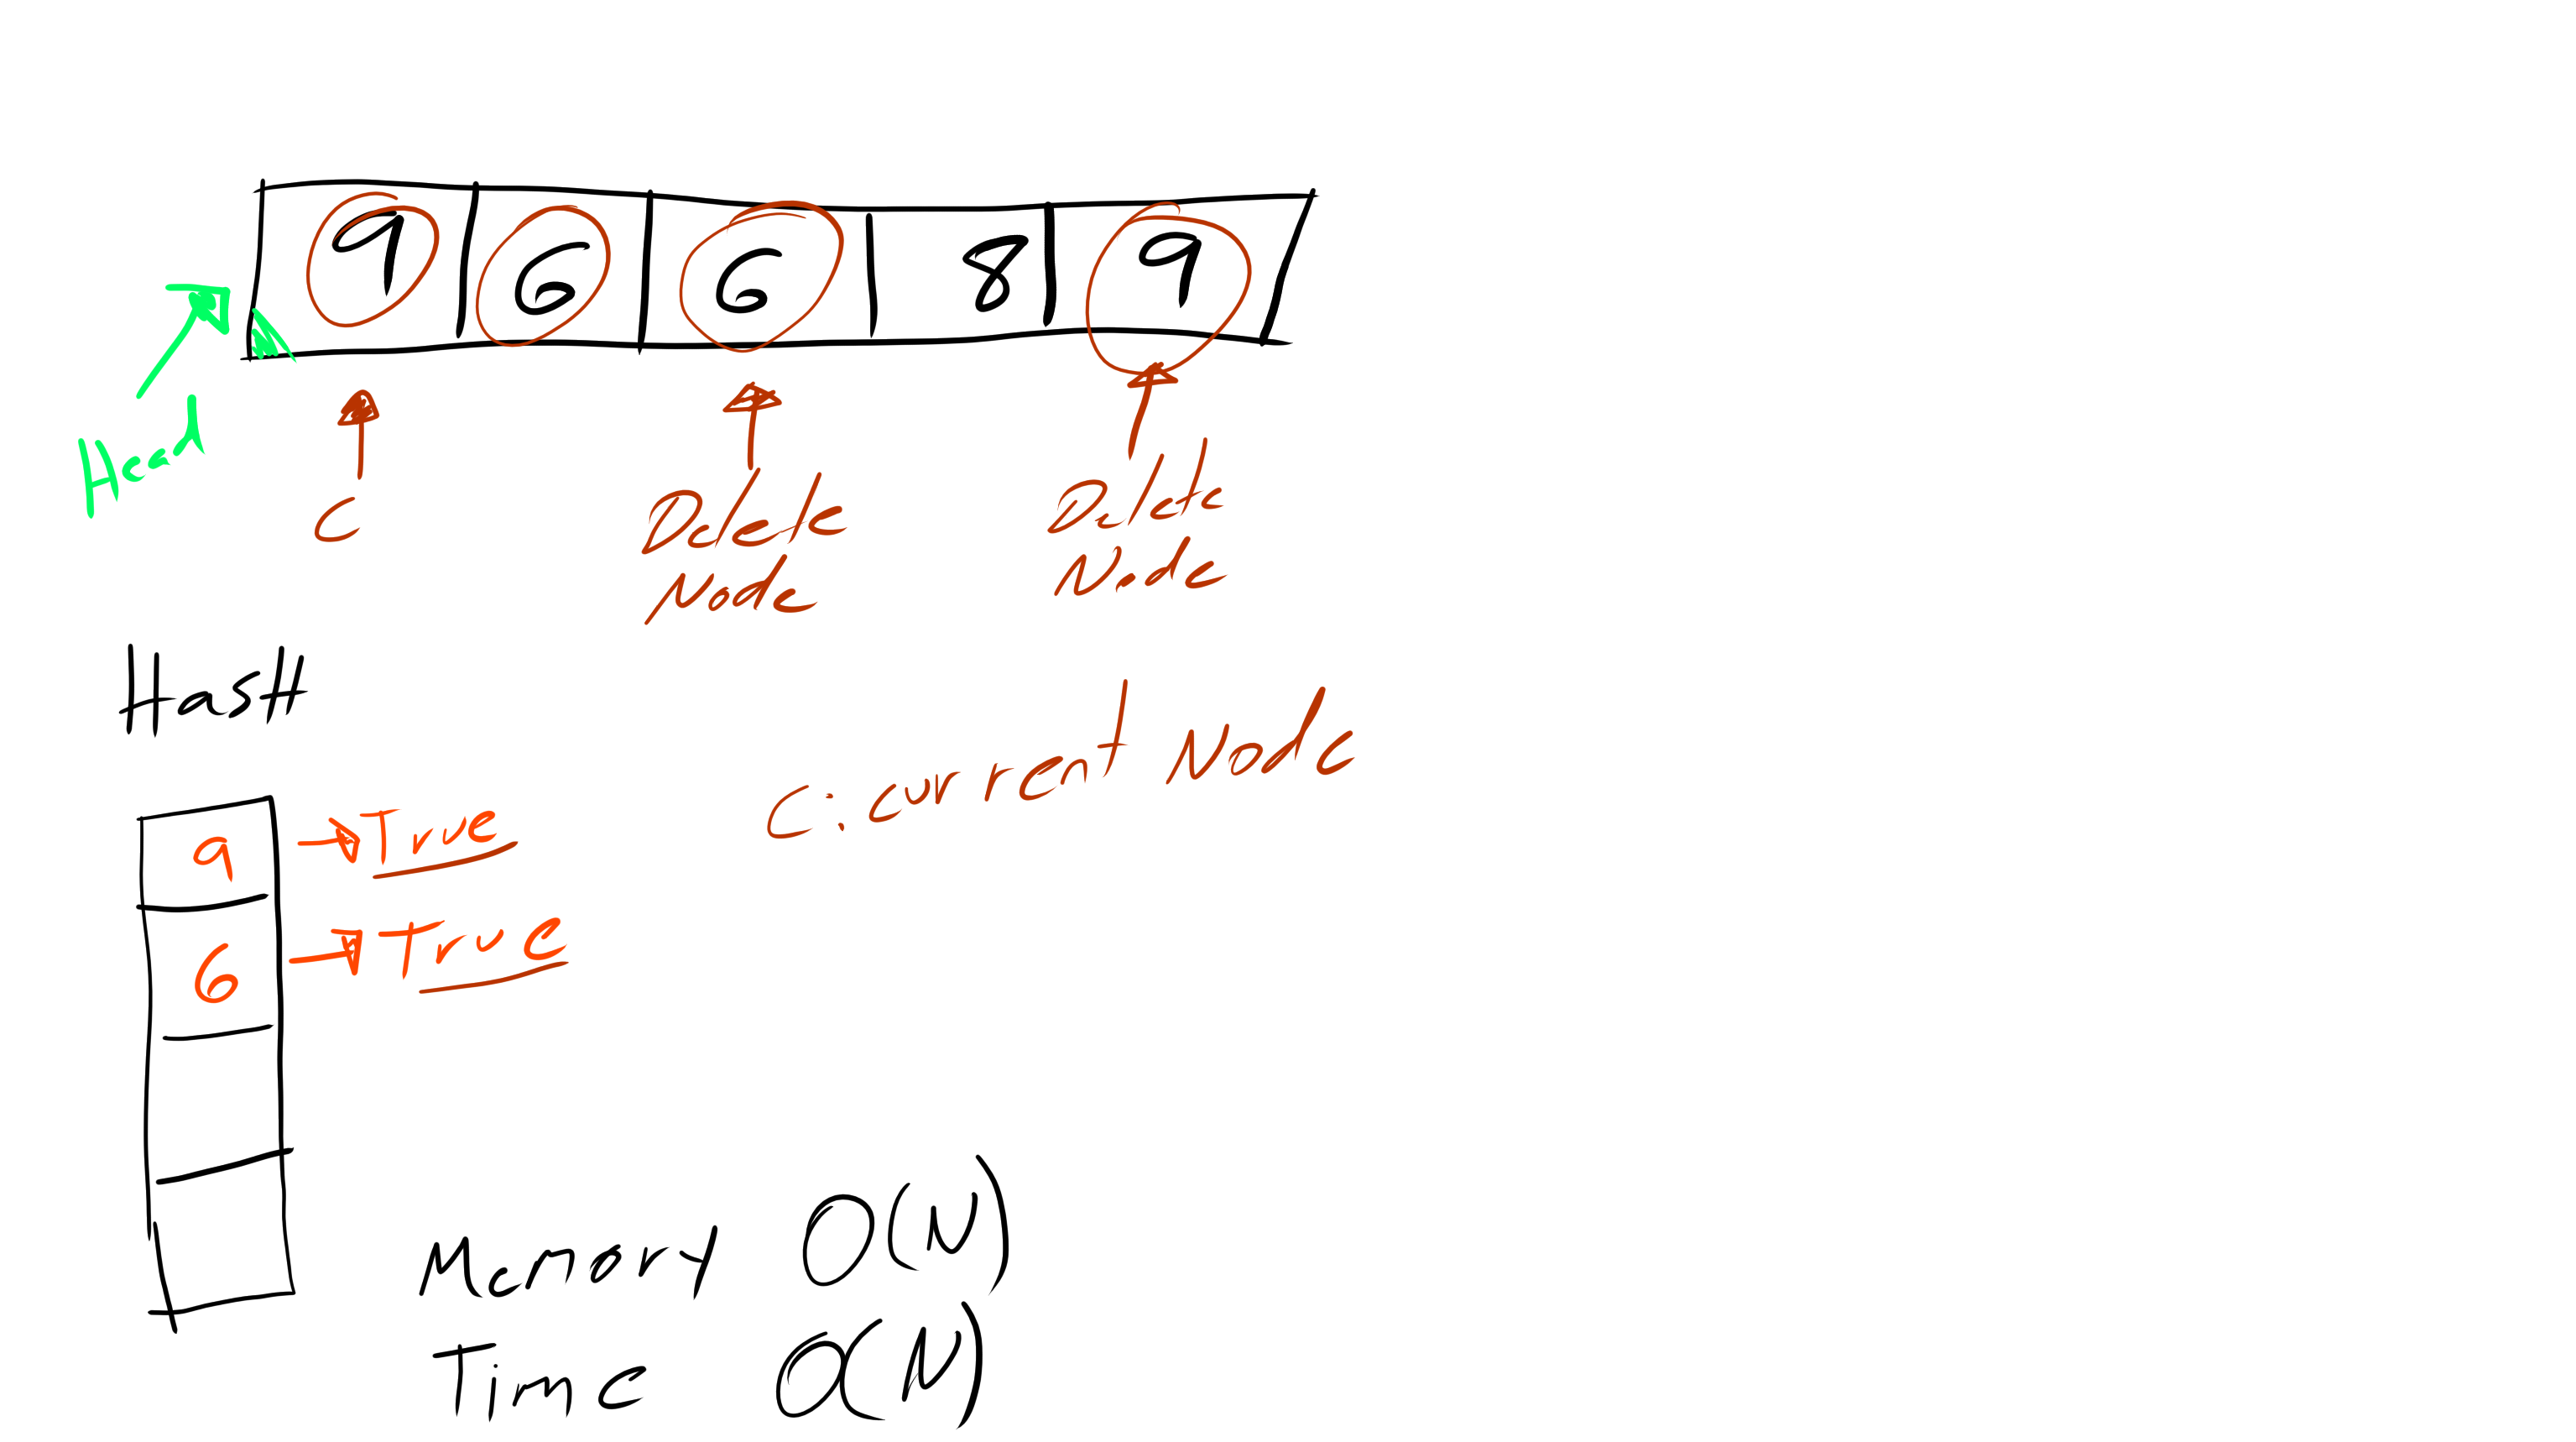 9 6 6 8 9
Head
C
Delete
Node
Delete
Node
HasH
C: current Node
9 True
6 True
Memory O(N)
Time O(N)